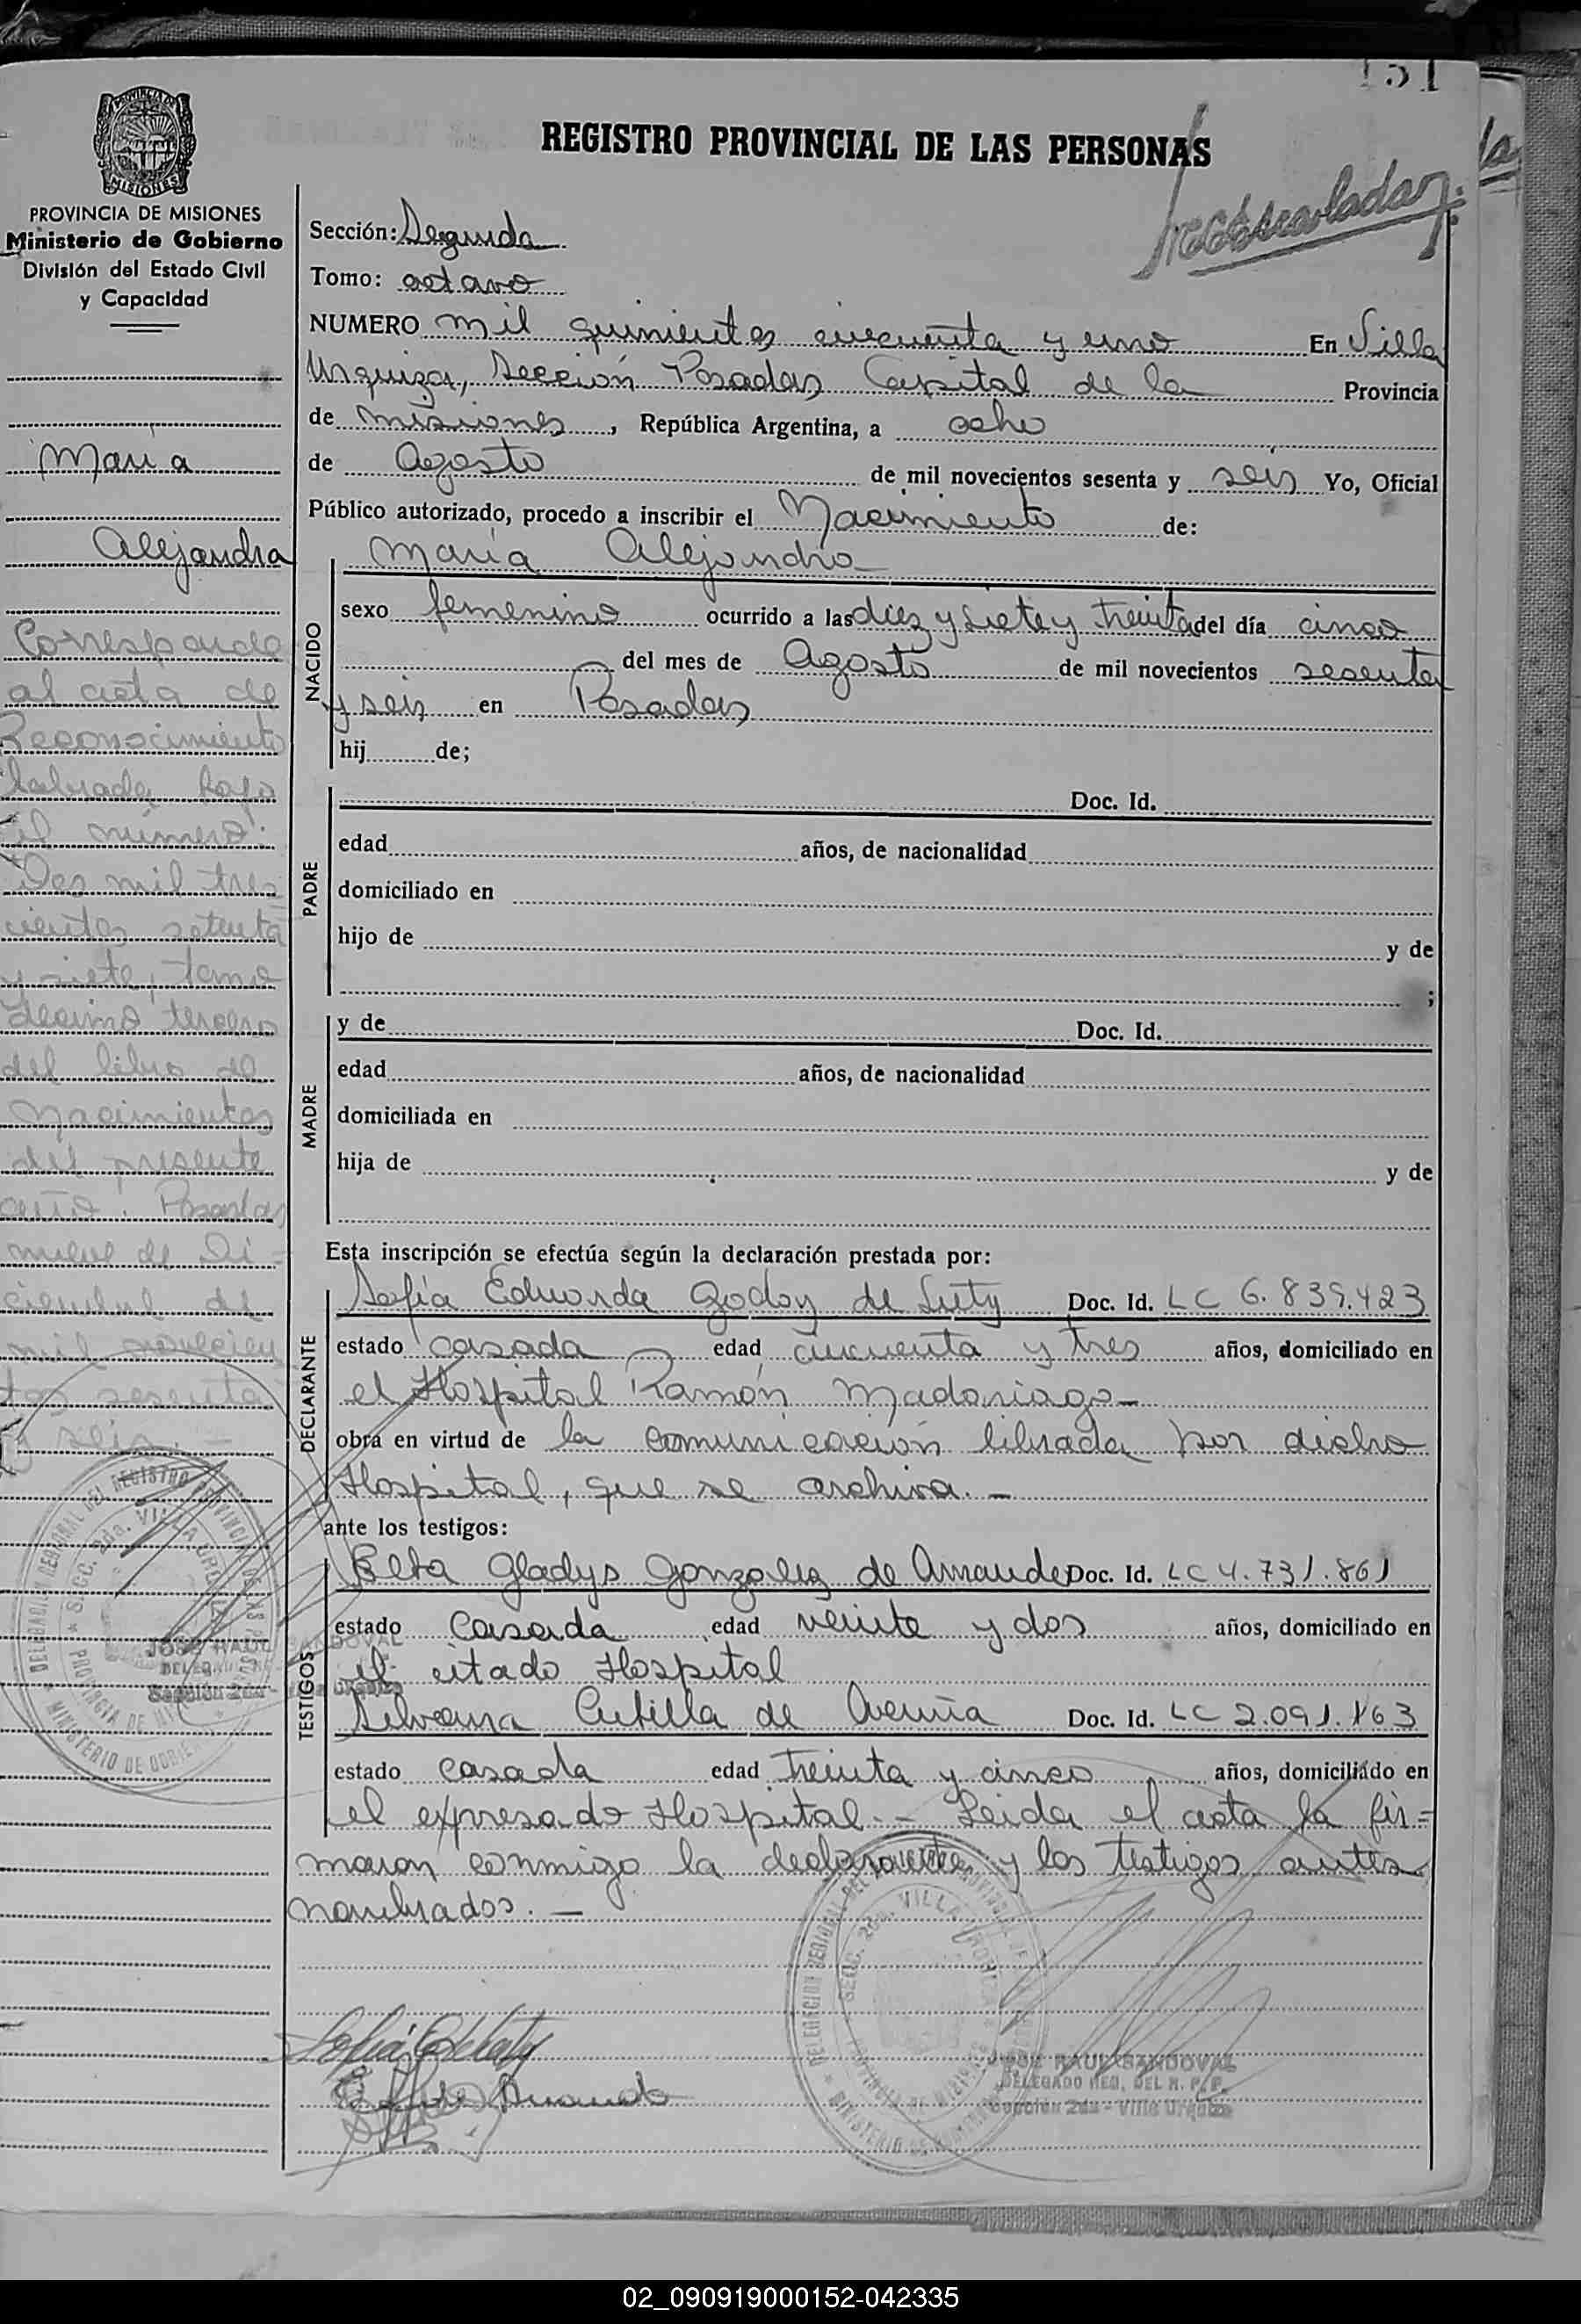 151
REGISTRO PROVINCIAL DE LAS PERSONAS
PROVINCIA DE MISIONES
Ministerio de Gobierno
División del Estado Civil
y Capacidad
María
Alejandra
Corresponde
al acta de
Reconocimiento
labrada bajo
el número:
Dos mil tres
cientos setenta
y siete, tomo
decimo tercero
del libro de
Nacimientos
del presente
año. Posadas
nueve de Di=
ciembre de
mil novecien
tos sesenta
y seis.—
Sección: Segunda
Tomo: octavo
NUMERO mil quinientos cincuenta y uno En Villa
Urquiza, Sección Posadas Capital de la Provincia
de Misiones, República Argentina, a ocho
de Agosto de mil novecientos sesenta y seis Yo, Oficial
Público autorizado, procedo a inscribir el Nacimiento de:
NACIDO
María Alejandra
sexo femenino ocurrido a las diez y siete y treinta del día cinco
del mes de Agosto de mil novecientos sesenta
y seis en Posadas
hij de;
PADRE
Doc. Id.
edad años, de nacionalidad
domiciliado en
hijo de y de
;
MADRE
y de Doc. Id.
edad años, de nacionalidad
domiciliada en
hija de y de
Esta inscripción se efectúa según la declaración prestada por:
DECLARANTE
Sofía Eduarda Godoy de Doc. Id. LC 6.839.423
estado casada edad cincuenta y tres años, domiciliado en
el Hospital Ramón Madariaga—
obra en virtud de la comunicación librada por dicho
Hospital, que se archiva.—
ante los testigos:
TESTIGOS
Gladys Gonzalez de Doc. Id. LC 4.731.861
estado Casada edad veinte y dos años, domiciliado en
el citado Hospital
Silvana de Doc. Id. LC 2.091.163
estado casada edad treinta y cinco años, domiciliado en
el expresado Hospital.— Leida el acta la fir=
maron conmigo la declarante y los testigos antes
nombrados.—
JOSE RAUL SANDOVAL
DELEGADO REG. DEL R. P. P.
Sección 2da - Villa Urquiza
02_090919000152-042335